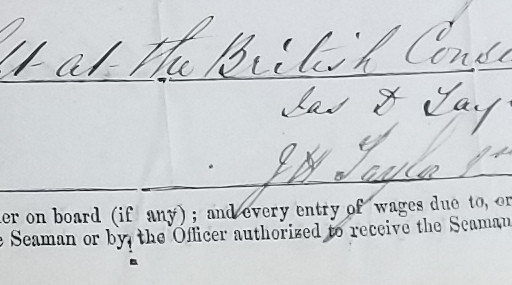 at the British Cons
Jas D Tay
J H Taylo
er on board (if any) ; and every entry of wages due to, or
e Seaman or by, the Officer authorized to receive the Seaman